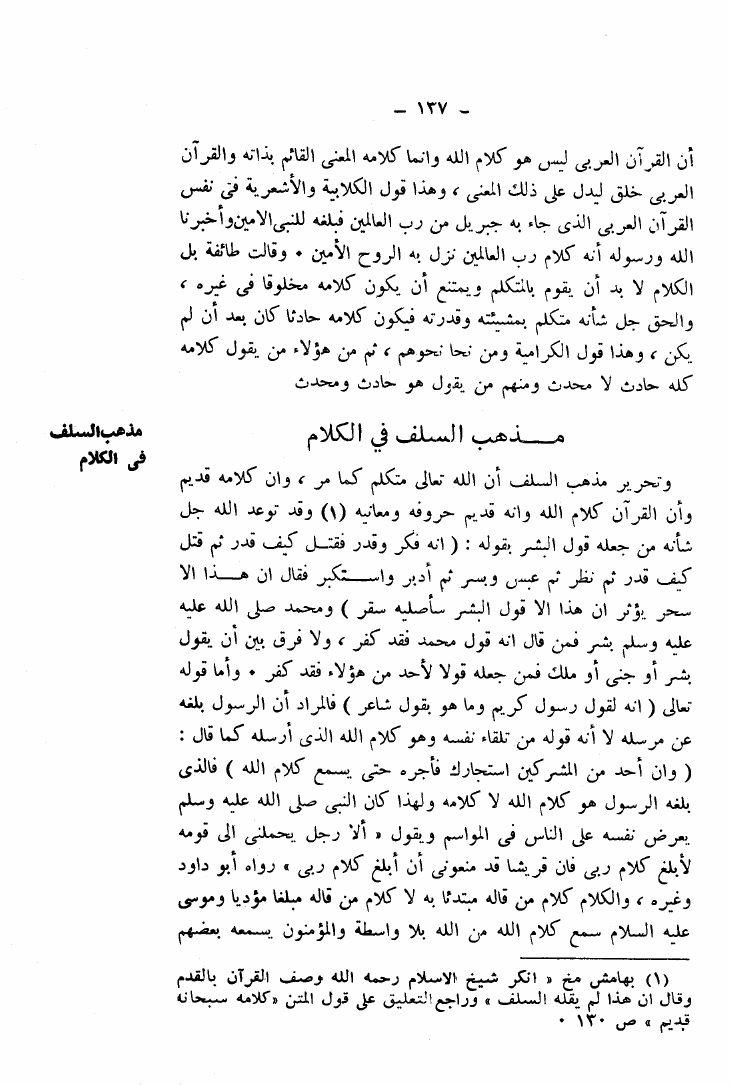 - ١٣٧ -
أن القرآن العربى ليس هو كلام الله وانما كلامه المعنى القائم بذاته والقرآن
العربى خلق ليدل على ذلك المعنى ، وهذا قول الكلابية والأشعرية فى نفس
القرآن العربى الذى جاء به جبريل من رب العالمين فبلغه للنبى الامين وأخبرنا
الله ورسوله أنه كلام رب العالمين نزل به الروح الأمين ٠ وقالت طائفة بل
الكلام لا بد أن يقوم بالمتكلم ويمتنع أن يكون كلامه مخلوقا فى غيره ،
والحق جل شأنه متكلم بمشيئته وقدرته فيكون كلامه حادثا كان بعد أن لم
يكن ، وهذا قول الكرامية ومن نحا نحوهم ، ثم من هؤلاء من يقول كلامه
كله حادث لا محدث ومنهم من يقول هو حادث ومحدث
مذهب السلف في الكلام
مذهب السلف
فى الكلام
وتحرير مذهب السلف أن الله تعالى متكلم كما مر ، وان كلامه قديم
وأن القرآن كلام الله وانه قديم حروفه ومعانيه (١) وقد توعد الله جل
شأنه من جعله قول البشر بقوله : ( انه فكر وقدر فقتل كيف قدر ثم قتل
كيف قدر ثم نظر ثم عبس وبسر ثم أدبر واستكبر فقال ان هذا الا
سحر يؤثر ان هذا الا قول البشر سأصليه سقر ) ومحمد صلى الله عليه
عليه وسلم بشر فمن قال انه قول محمد فقد كفر ، ولا فرق بين أن يقول
بشر أو جنى أو ملك فمن جعله قولا لأحد من هؤلاء فقد كفر ٠ وأما قوله
تعالى ( انه لقول رسول كريم وما هو بقول شاعر ) فالمراد أن الرسول بلغه
عن مرسله لا أنه قوله من تلقاء نفسه وهو كلام الله الذى أرسله كما قال :
( وان أحد من المشركين استجارك فأجره حتى يسمع كلام الله ) فالذى
بلغه الرسول هو كلام الله لا كلامه ولهذا كان النبى صلى الله عليه وسلم
يعرض نفسه على الناس فى المواسم ويقول « ألا رجل يحملنى الى قومه
لأبلغ كلام ربى فان قريشا قد منعونى أن أبلغ كلام ربى » رواه أبو داود
وغيره ، والكلام كلام من قاله مبتدئا به لا كلام من قاله مبلغا مؤديا وموسى
عليه السلام سمع كلام الله من الله بلا واسطة والمؤمنون يسمعه بعضهم
(١) بهامش مخ « انكر شيخ الاسلام رحمه الله وصف القرآن بالقدم
وقال ان هذا لم يقله السلف » وراجع التعليق على قول المتن «كلامه سبحانه
قديم » ص ١٣٠ ٠